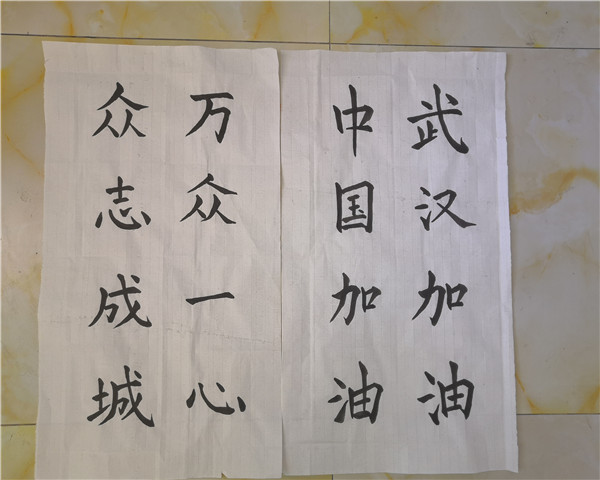 武汉加油
中国加油
万众一心
众志成城